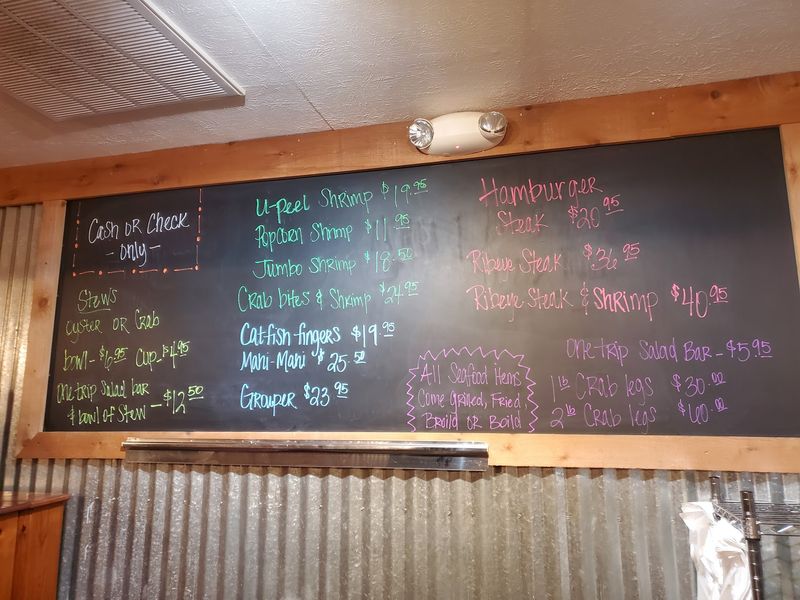 Cash or Check
- only -
Stews
oyster or Crab
bowl - $6.95 Cup - $4.95
one-trip salad bar
& bowl of Stew - $12.50
U-peel Shrimp $19.95
Popcorn Shrimp $11.95
Jumbo Shrimp $18.50
Crab bites & Shrimp $24.95
Catfish-fingers $19.95
Mahi-Mahi $25.50
Grouper $23.95
Hamburger
Steak $20.95
Ribeye Steak $36.95
Ribeye Steak & Shrimp $40.95
All Seafood Items
Come Grilled, Fried
Broild or Boild
one-trip Salad Bar - $5.95
1 lb Crab legs $30.00
2 lb Crab legs $60.00